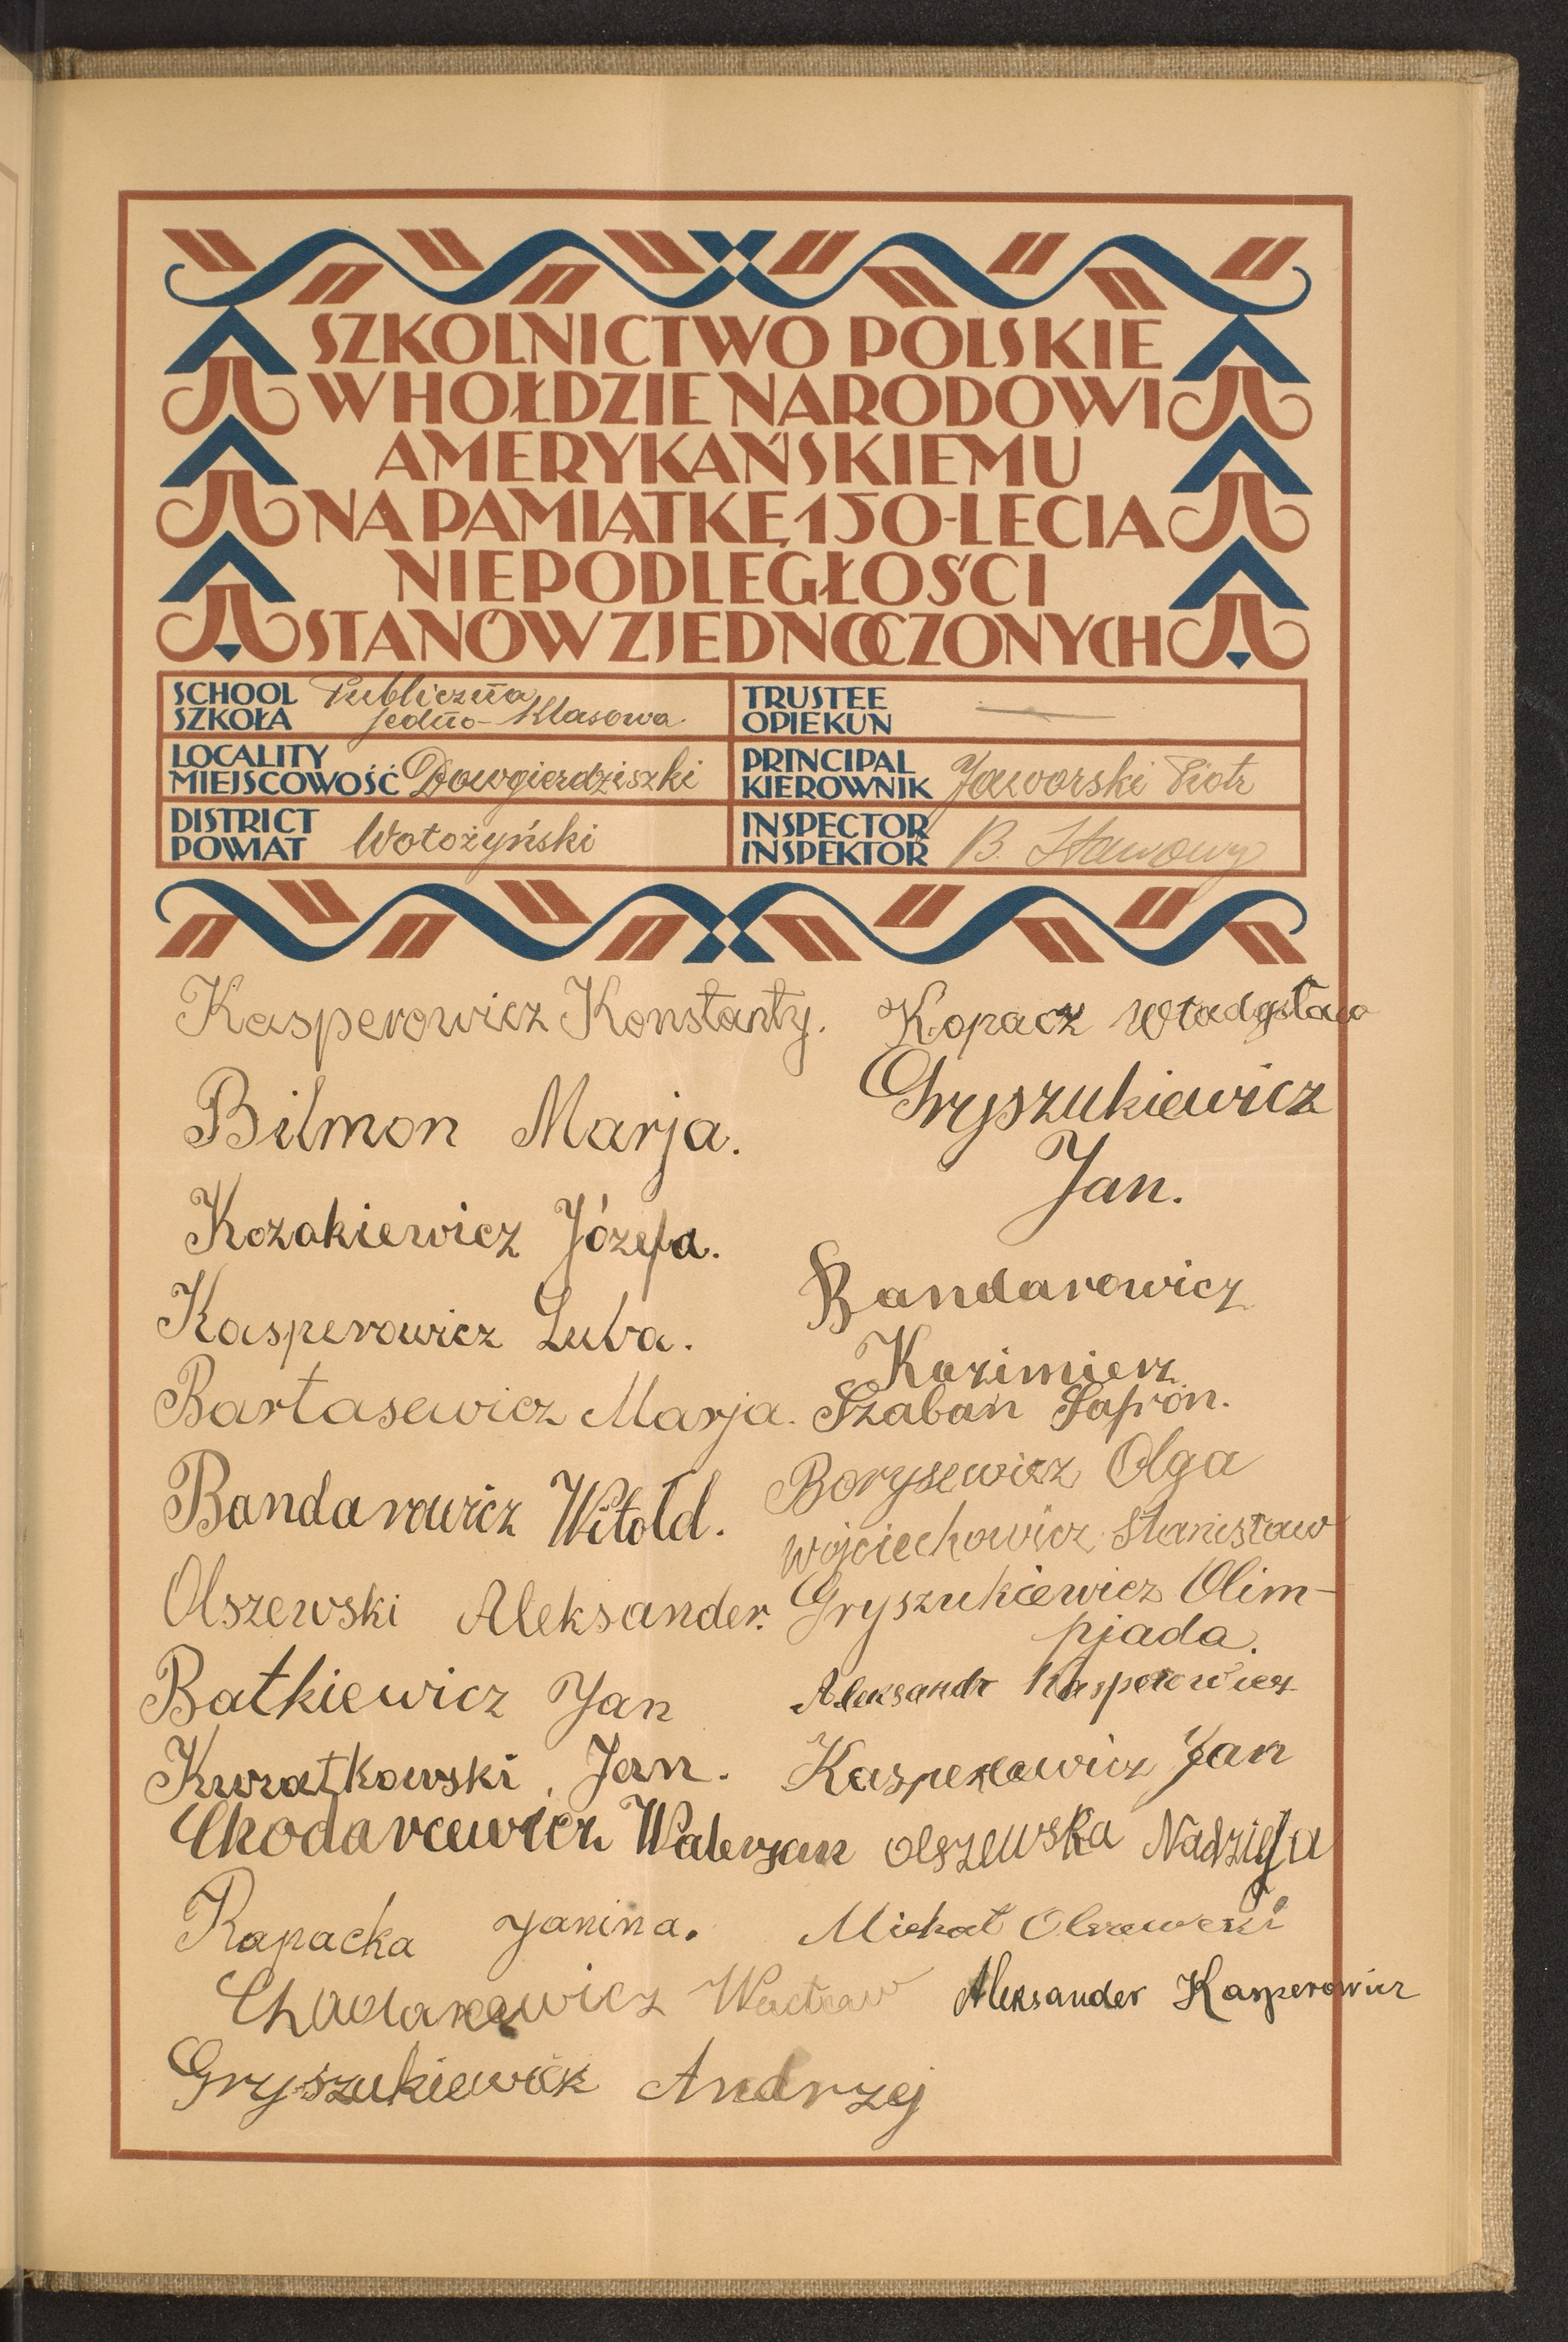 SZKOLNICTWO POLSKIE
W HOŁDZIE NARODOWI
AMERYKAŃSKIEMU
NA PAMIĄTKĘ 150-LECIA
NIEPODLEGŁOŚCI
STANÓW ZJEDNOCZONYCH
SCHOOL
SZKOŁA
Publiczna
jedno-Klasowa
TRUSTEE
OPIEKUN
LOCALITY
MIEJSCOWOŚĆ
Dowgierdziszki
PRINCIPAL
KIEROWNIK
Jaworski Piotr
DISTRICT
POWIAT
Wołożyński
INSPECTOR
INSPEKTOR
B. Stawowy
Kasperowicz Konstanty.
Bilmon Marja.
Kozakiewicz Józefa.
Kasperowicz Luba.
Bartasewicz Marja.
Bandarowicz Witold.
Olszewski Aleksander.
Batkiewicz Jan
Kwiatkowski Jan.
Chodarcewicz Walerjan
Rapacka Janina.
Wacław
Gryszukiewicz Andrzej
Kopacz Władysław
Gryszukiewicz
Jan.
Bandarowicz
Kazimierz
Szaban Safron.
Borysewicz Olga
Wojciechowicz Stanisław
Gryszukiewicz Olim-
pjada.
Aleksandr Kasperowicz
Kasperowicz Jan
Olszewska Nadzieja
Michał Olszewski
Aleksander Kasperowicz